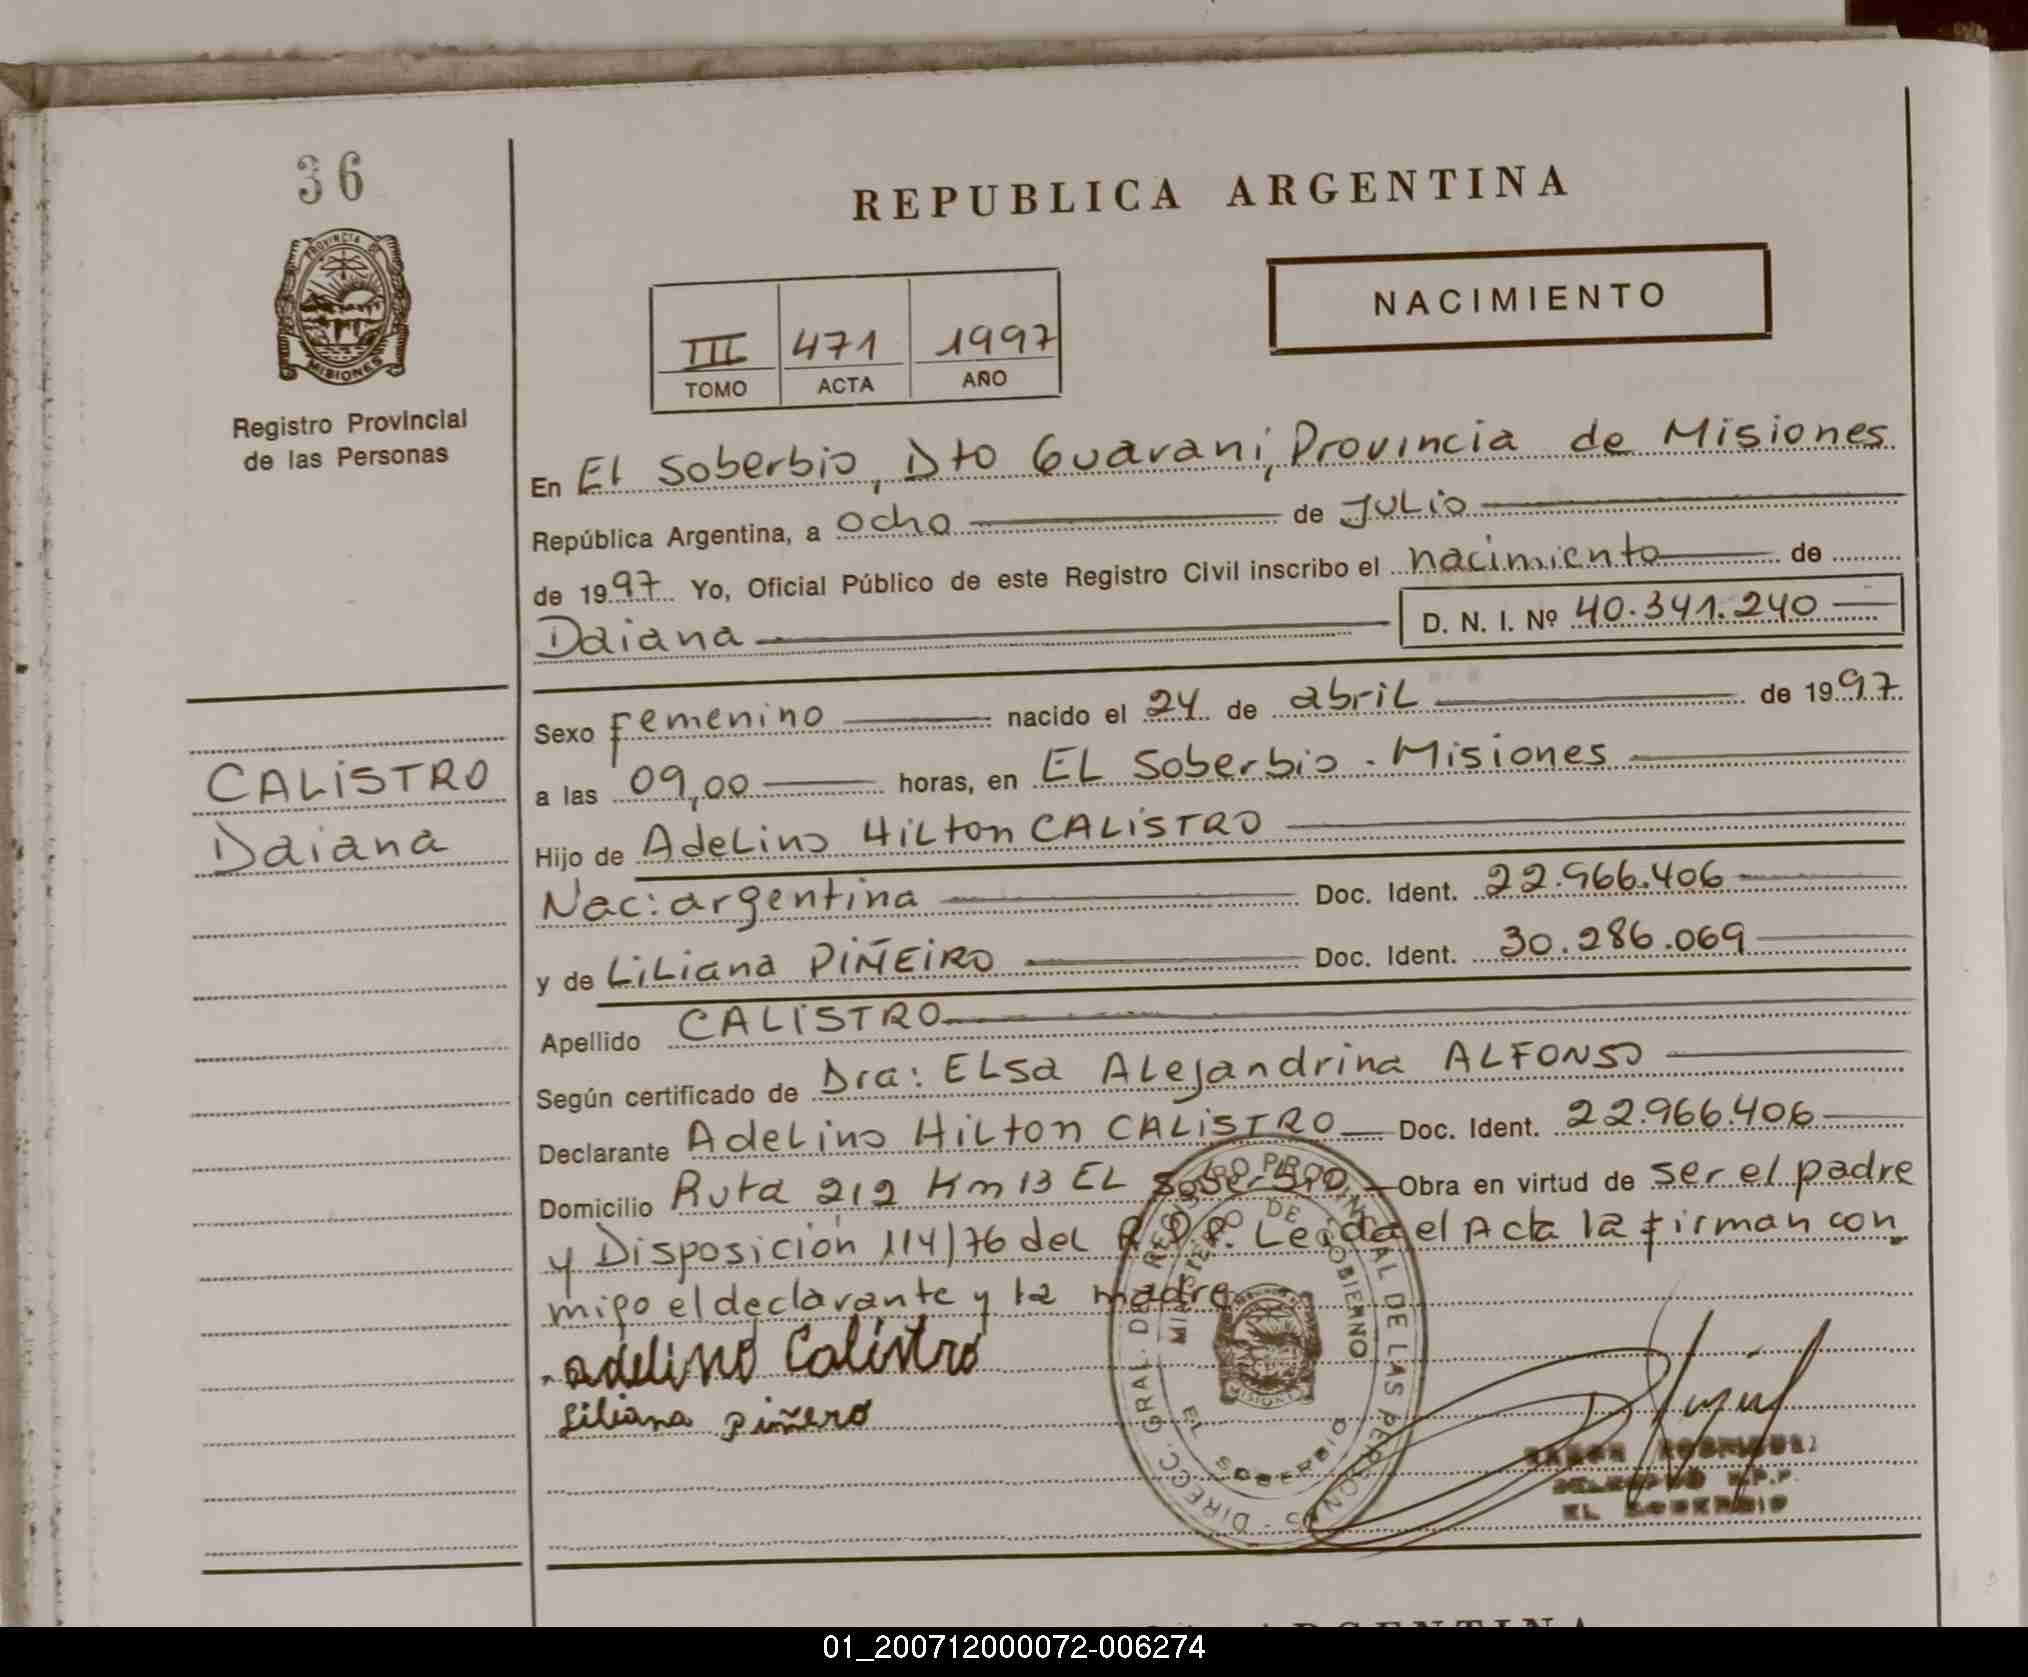 36
PROVINCIA DE
MISIONES
Registro Provincial
de las Personas
REPUBLICA ARGENTINA
NACIMIENTO
III 471 1997
TOMO ACTA AÑO
En El Soberbio, Dto Guaraní, Provincia de Misiones
República Argentina, a ocho de JULIO
de 1997 Yo, Oficial Público de este Registro Civil inscribo el nacimiento de
Daiana D. N. I. Nº 40.341.240
Sexo Femenino nacido el 24 de abril de 1997
a las 09,00 horas, en EL Soberbio - Misiones
CALISTRO
Daiana
Hijo de Adelino Hilton CALISTRO
Nac: argentina Doc. Ident. 22.966.406
y de Liliana PIÑEIRO Doc. Ident. 30.286.069
Apellido CALISTRO
Según certificado de Dra: ELSA Alejandrina ALFONSO
Declarante Adelino Hilton CALISTRO Doc. Ident. 22.966.406
Domicilio Ruta 212 Km 13 EL Soberbio Obra en virtud de ser el padre
y Disposición 114/76 del R.P.P. Leída el Acta la firman con
migo el declarante y la madre
adelino Calistro
Liliana piñero
DIRECC. GRAL. DE REGISTRO PROVINCIAL DE LAS PERSONAS
MINISTERIO DE GOBIERNO
MISIONES
EL SOBERBIO
EL SOBERBIO
ARGENTINA
01_200712000072-006274